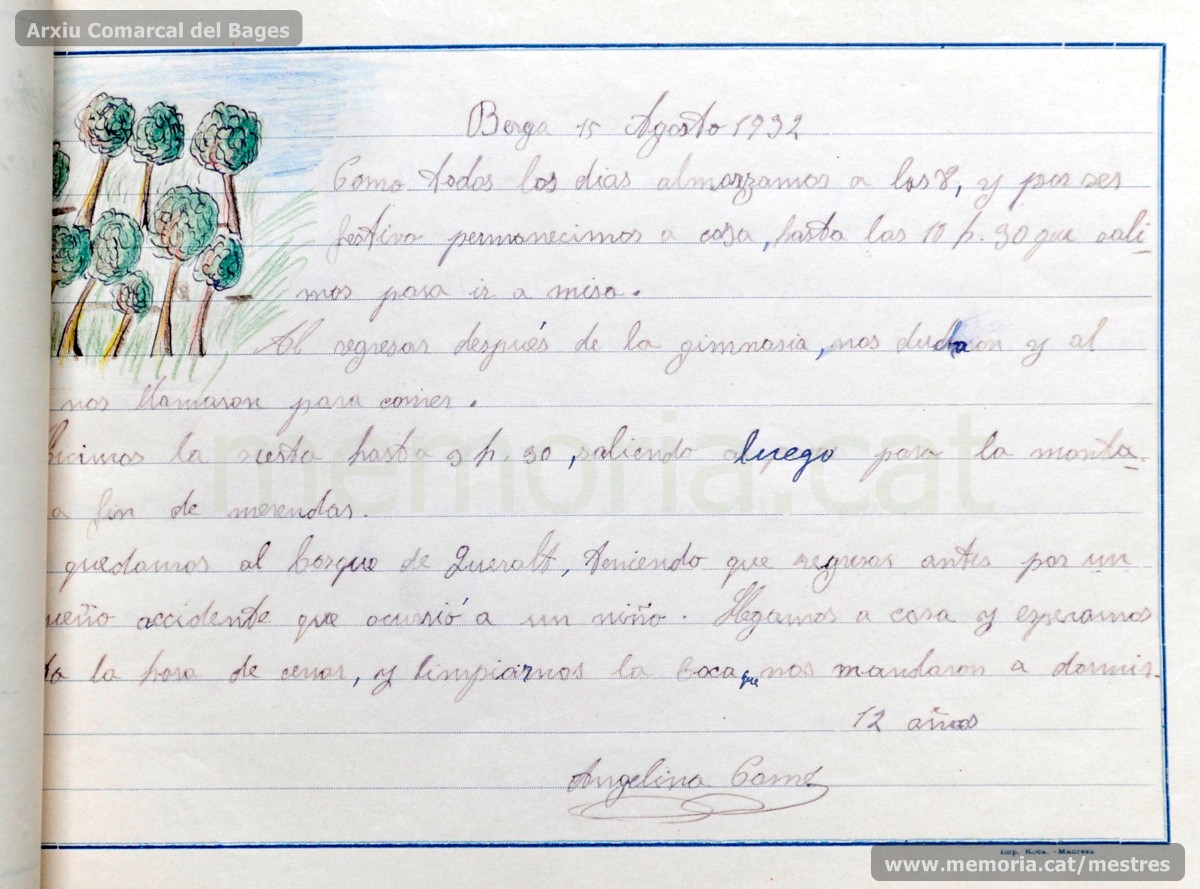 Arxiu Comarcal del Bages
Berga 15 Agosto 1932
Como todos los dias almorzamos a las 8, y por ser
festivo permanecimos a casa, hasta las 10 h. 30 que sali-
mos para ir a misa.
Al regresar después de la gimnasia, nos ducharon y al
nos llamaron para comer.
hicimos la siesta hasta 3 h. 30, saliendo luego para la monta-
a fin de merendar.
quedamos al bosque de Queralt, teniendo que regresar antes por un
ueño accidente que ocurrió a un niño. Llegamos a casa y esperamos
ta la hora de cenar, y limpiarnos la boca que nos mandaron a dormir.
12 años
Angelina
memoria.cat
Imp. Roca. - Manresa
www.memoria.cat/mestres